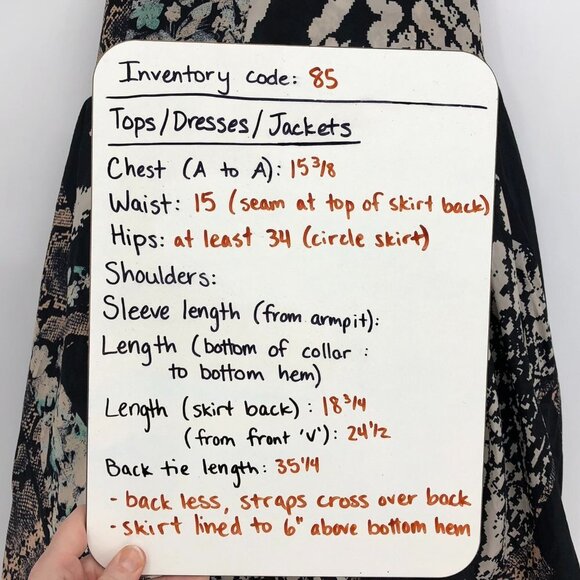 Inventory code: 85
Tops/Dresses/Jackets
Chest (A to A): 15 3/8
Waist: 15 (seam at top of skirt back)
Hips: at least 34 (circle skirt)
Shoulders:
Sleeve length (from armpit):
Length (bottom of collar :
to bottom hem)
Length (skirt back) : 18 3/4
(from front 'v'): 24 1/2
Back tie length: 35 1/4
- back less, straps cross over back
- skirt lined to 6" above bottom hem